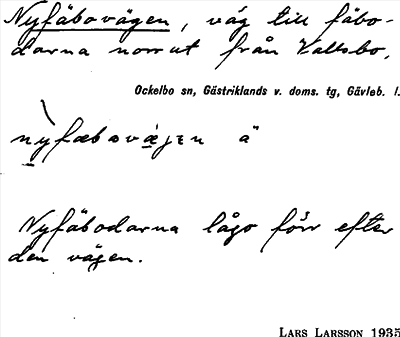 Nyfäbovägen, väg till fäbo-
darna norrut från Valtsbo.
Ockelbo sn, Gästriklands v. doms. tg, Gävleb. l.
nyfæbovæ̀gen ä
Nyfäbodarna lågo förr efter
den vägen.
LARS LARSSON 1935